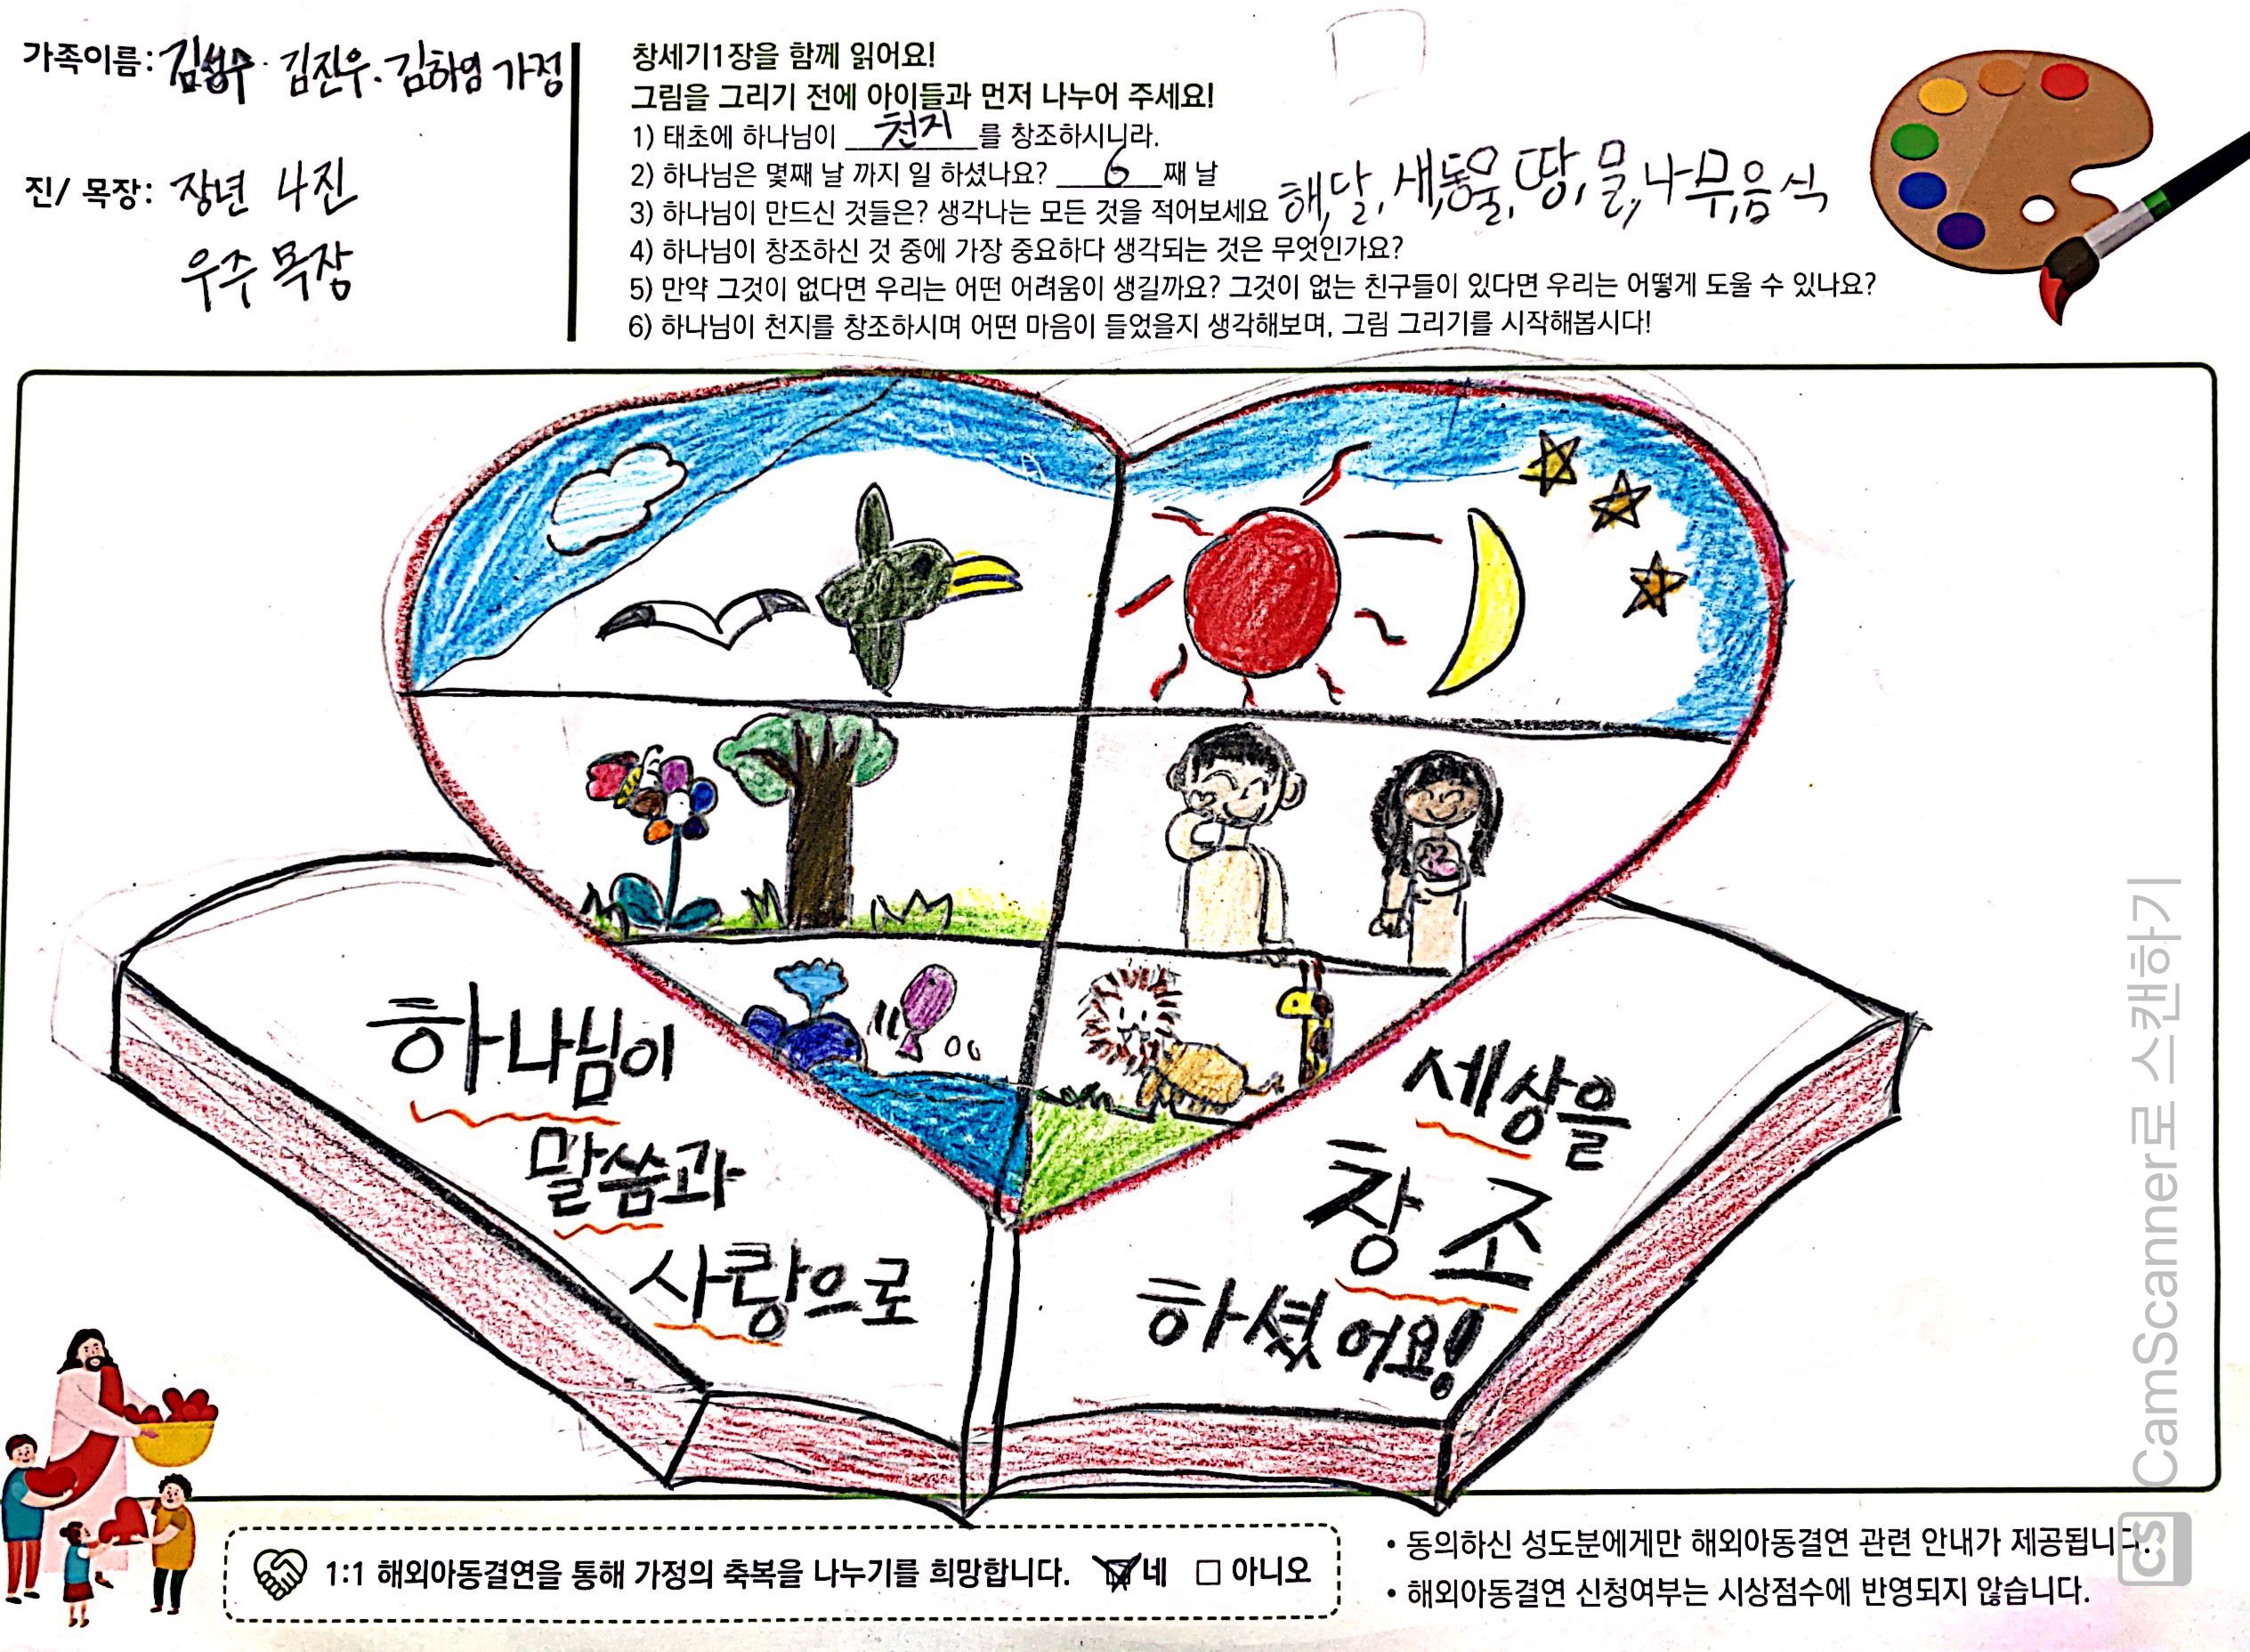 가족이름: 김성수·김진우·김하영 가정
진/ 목장: 장년 4진
우주 목장
창세기1장을 함께 읽어요!
그림을 그리기 전에 아이들과 먼저 나누어 주세요!
1) 태초에 하나님이 천지를 창조하시니라.
2) 하나님은 몇째 날 까지 일 하셨나요? 6째 날
3) 하나님이 만드신 것들은? 생각나는 모든 것을 적어보세요 해,달,새,동물,땅,물,나무,음식
4) 하나님이 창조하신 것 중에 가장 중요하다 생각되는 것은 무엇인가요?
5) 만약 그것이 없다면 우리는 어떤 어려움이 생길까요? 그것이 없는 친구들이 있다면 우리는 어떻게 도울 수 있나요?
6) 하나님이 천지를 창조하시며 어떤 마음이 들었을지 생각해보며, 그림 그리기를 시작해봅시다!
하나님이
말씀과
사랑으로
세상을
창조
하셨어요!
1:1 해외아동결연을 통해 가정의 축복을 나누기를 희망합니다. ☑네 □ 아니오
• 동의하신 성도분에게만 해외아동결연 관련 안내가 제공됩니다.
• 해외아동결연 신청여부는 시상점수에 반영되지 않습니다.
CS CamScanner로 스캔하기